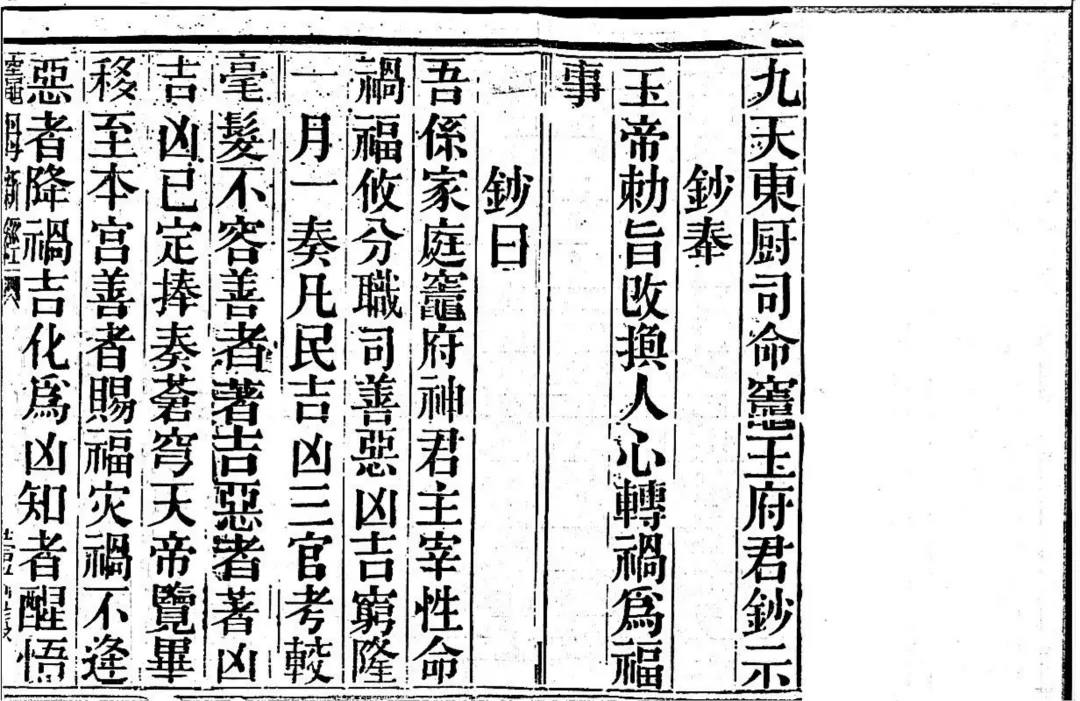 九天東厨司命竈王府君鈔示
鈔奉
玉帝勅旨改換人心轉禍爲福
事
一鈔曰
吾係家庭竈府神君主宰性命
禍福攸分職司善惡凶吉窮隆
一月一奏凡民吉凶三官考較
毫髮不容善者著吉惡者著凶
吉凶已定捧奏蒼穹天帝覽畢
移至本宮善者賜福灾禍不逢
惡者降禍吉化爲凶知者醒悟